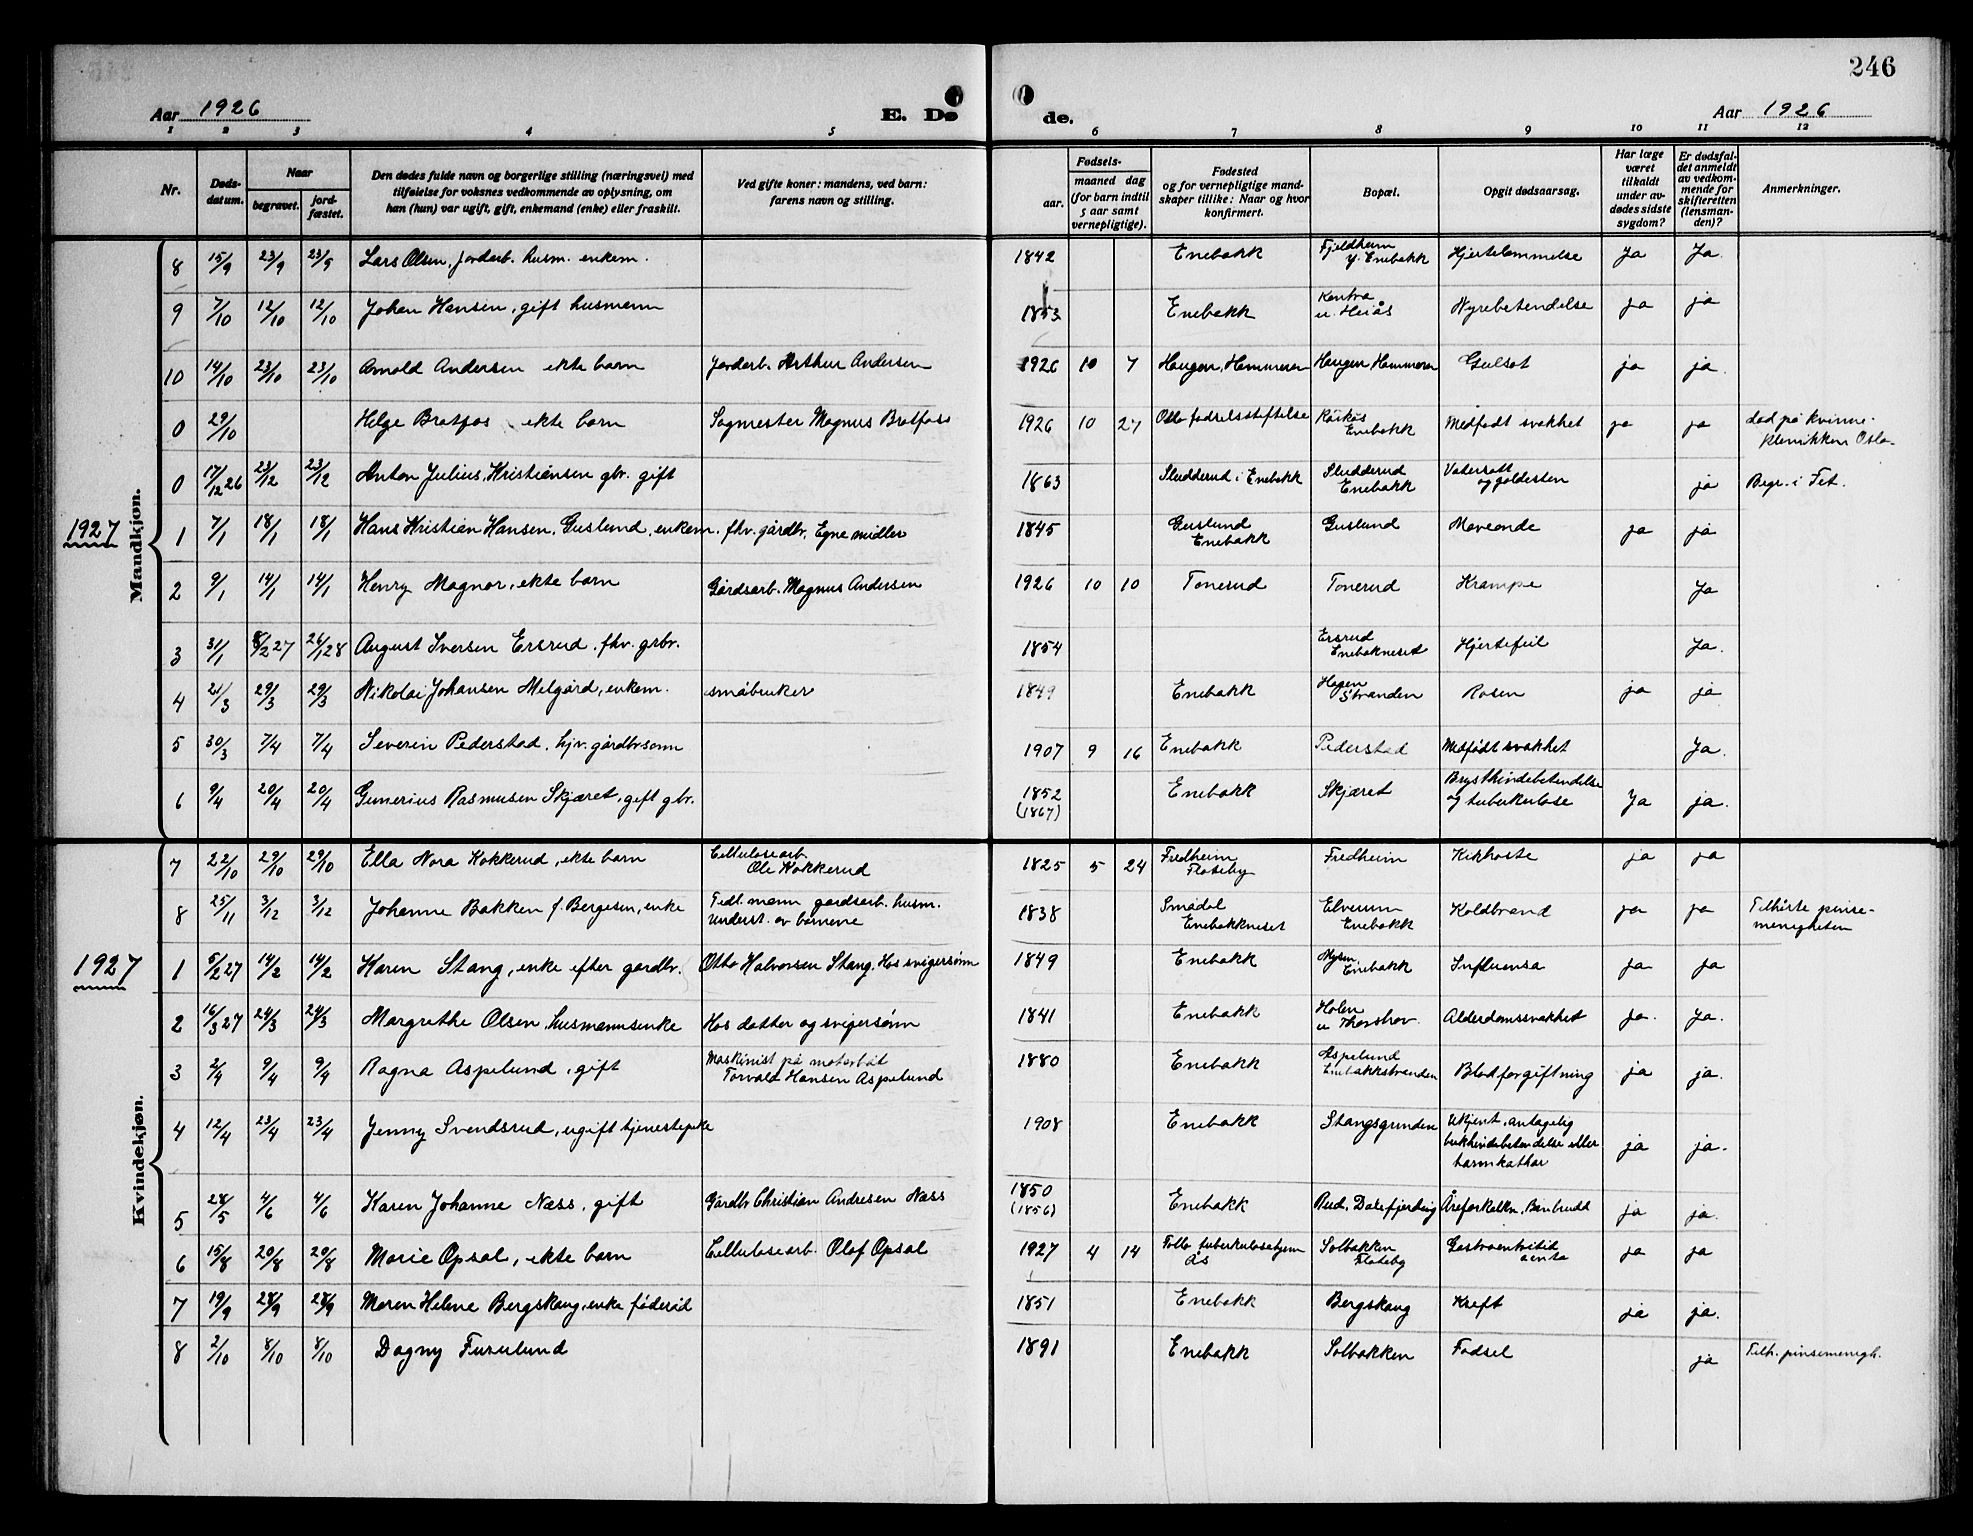 246
Aar 1926 E. Dø de. Aar 1926
1 2 3 4 5 6 7 8 9 10 11 12
Nr. Døds-datum. Naar begravet. jord-fæstet. Den dødes fulde navn og borgerlige stilling (næringsvei) med tilføielse for voksnes vedkommende av oplysning, om han (hun) var ugift, gift, enkemand (enke) eller fraskilt. Ved gifte koner: mandens, ved barn: farens navn og stilling. Fødsels- aar. maaned dag (for barn indtil 5 aar samt vernepligtige). Fødested og for vernepligtige mand-skaper tillike: Naar og hvor konfirmert. Bopæl. Opgit dødsaarsag. Har læge været tilkaldt under av-dødes sidste sygdom? Er dødsfal-det anmeldt av vedkom-mende for skifteretten (lensman-den)? Anmerkninger.
Mandkjøn.
8 15/9 23/9 23/9 Lars Olsen, jordarb. husm. enkem. 1842 Enebakk Fjeldheim y. Enebakk Hjertelammelse Ja Ja.
9 7/10 12/10 12/10 Johan Hansen, gift husmann 1853 Enebakk u. Heiås Nyrebetendelse ja ja
10 14/10 23/10 23/10 Arnold Andersen ekte barn Jordarb. Arthur Andersen 1926 10 7 Haugen, Hammeren Haugen, Hammeren Gulsot ja ja.
0 29/10 Helge Bratfos ekte barn Sagmester Magnus Bratfoss 1926 10 27 Oslo fødselsstiftelse Råkås Enebakk Medfødt svakhet ja ja død på kvinne-klinikken Oslo.
0 17/12 26 23/12 23/12 Anton Julius Kristiansen gbr. gift 1863 Sludderud i Enebakk Sludderud Enebakk Vatersott og galdesten ja Begr. i Fet.
1927
1 7/1 18/1 18/1 Hans Kristian Hansen, Guslund, enkem. fhv. gårdbr. Egne midler 1845 Guslund Enebakk Guslund Maveonde ja ja
2 9/1 14/1 14/1 Henry Magnor, ekte barn Gårdsarb. Magnus Andersen 1926 10 10 Tonerud Tonerud Krampe Ja
3 31/1 8/2 27 26/1 28 August Iversen Ersrud, fhv. grbr. 1854 Ersrud Enebakneset Hjertefeil Ja.
4 21/3 29/3 29/3 Nikolai Johansen Melgård, enkem. småbruker 1849 Enebakk Hagen Stranden Rosen ja ja
5 30/3 7/4 7/4 Severin Pederstad, hjv. gårdbrsønn 1907 9 16 Enebakk Pederstad Medfødt svakhet Ja.
6 9/4 20/4 20/4 Gunerius Rasmusen Skjæret, gift gbr. 1852 (1867) Enebakk Skjæret Brysthindebetendelse og tuberkulose Ja ja.
Kvindekjøn.
7 22/10 29/10 29/10 Ella Nora Kokkerud, ekte barn Cellulosearb. Ole Kokkerud 1825 5 24 Fredheim Flateby Fredheim Kikhoste ja ja
8 25/11 3/12 3/12 Johanne Bakken f. Bergesen, enke Tidl. mann gardsarb. husm. Underst. av barnene 1838 Smådal Enebakkneset Elverum Enebakk Koldbrand ja ja Tilhørte pinse-menigheten
1927
1 5/2 27 14/2 14/2 Karen Stang, enke efter gardbr. Otto Halvorsen Stang. Hos svigersønn 1849 Enebakk Mysen Enebakk Influensa ja ja
2 16/3 27 24/3 24/3 Margrethe Olsen, husmannsenke Hos datter og svigersønn 1841 Enebakk Holen u Thorshov. Alderdomssvakhet ja. Ja.
3 2/4 9/4 9/4 Ragna Aspelund, gift Maskinist på motorbåt Torvald Hansen Aspelund 1880 Enebakk Aspelund Enebakkstranden Blodforgiftning ja ja.
4 12/4 23/4 23/4 Jenny Svendsrud, ugift tjenestepike 1908 Enebakk Stangsgrinden Ukjent, antagelig bukhindebetendelse eller tarmkathar ja ja.
5 28/5 4/6 4/6 Karen Johanne Næss, gift Gårdbr Christian Andresen Næss 1850 (1856) Enebakk Rud, Dalefjerding Åreforkalkn. Benbrudd ja ja.
6 15/8 20/8 20/8 Marie Opsal, ekte barn Cellulosearb. Olaf Opsal 1927 4 14 Follo tuberkulosehjem Ås Solbakken Flateby ja ja
7 19/9 28/9 28/9 Maren Helene Bergskaug, enke føderåd 1851 Enebakk Bergskaug Kreft ja ja.
8 2/10 8/10 8/10 Dagny Furulund 1891 Enebakk Solbakken Fødsel ja Tilh. pinsemenigh.